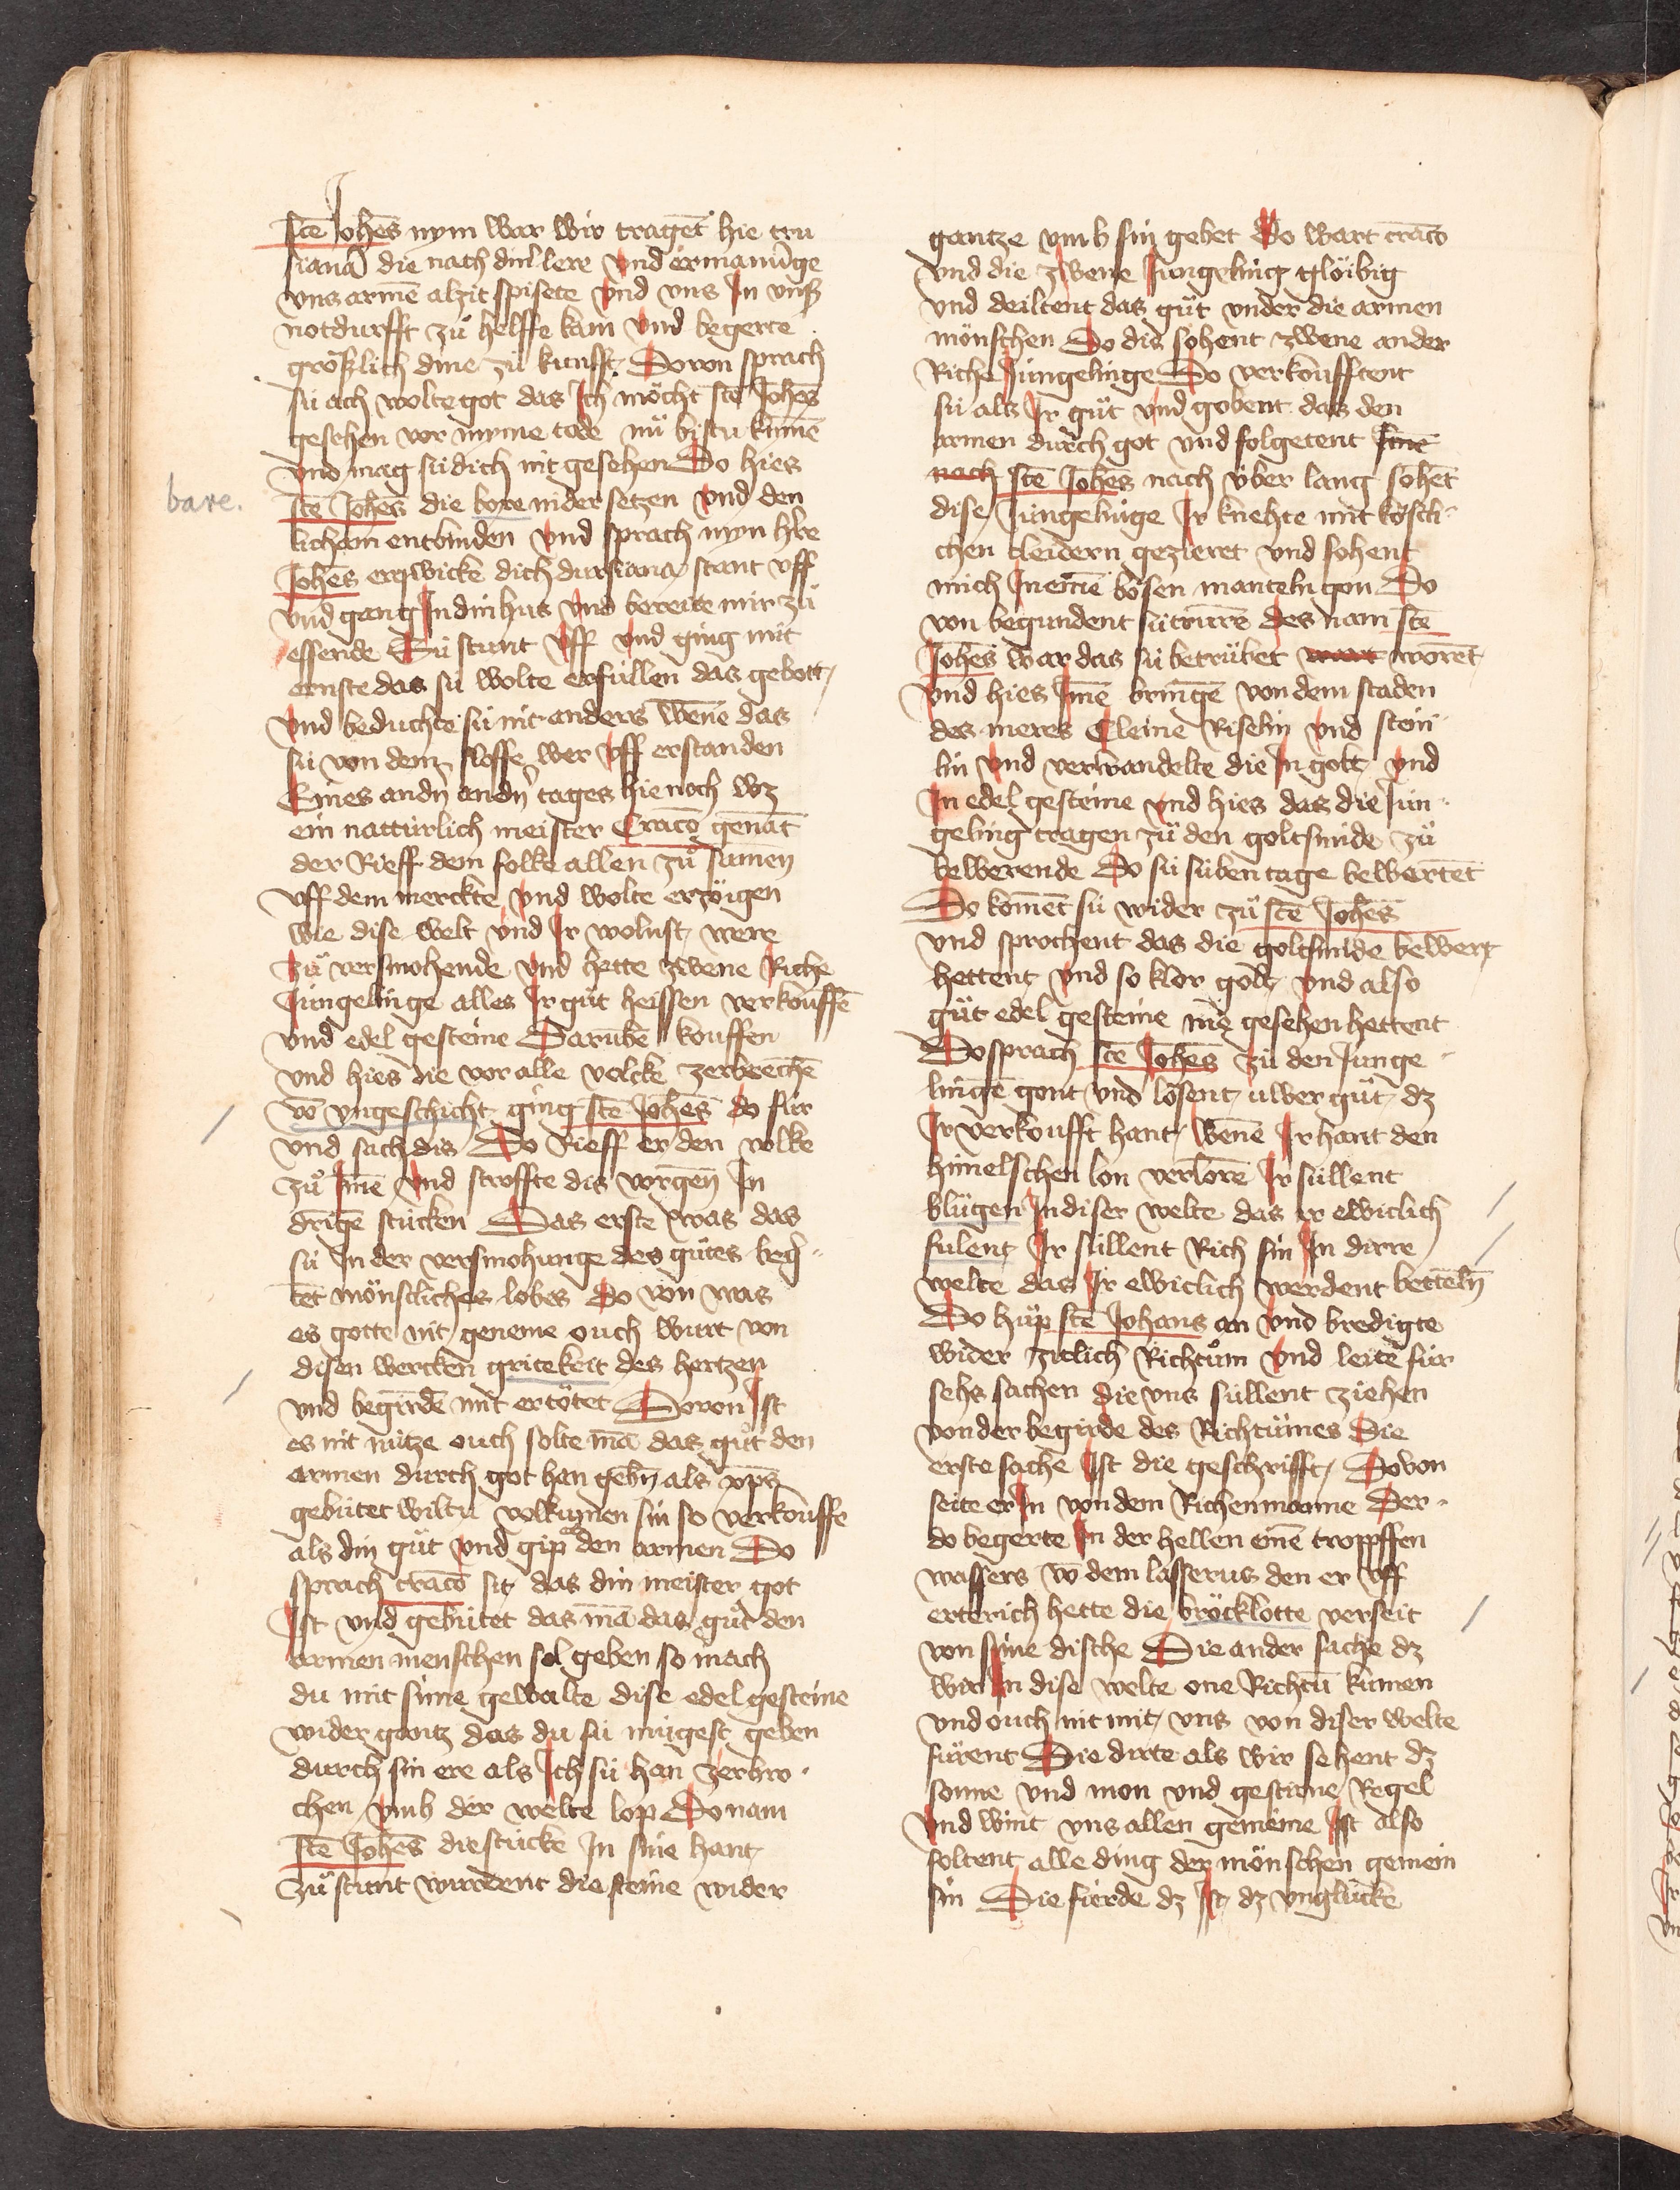 scē Johēs nym war wir tragēt hie tru
sianā die nach dinr lere vnd ermanūge
vns armē alzit spisete vnd vns Jn vnß
notdurfft zů helffe kam vnd begerte
größlich dine zů kunfft Dovon sprach
sü ach wolte got das Jch möcht scē Johēs
gesehen vor myme tode nů bistu kumē
vnd mag sü dich nit gesehen Do hies
bare.
scē Johēs die bore nider setzen vnd den
licham entbinden vnd sprach myn hr̄e
Johēs erqwicke dich drusiana stant vff
vnd gang Jn din hus vnd bereite mir zů
essende Sü stunt vff vnd ging mit
ernste das sü wolte erfüllen das gebott
vnd beduchte sü nit anders wēne das
sü von dem sloffe wer vff erstanden
Eines andn̄ andn̄ tages hie noch wz
ein nattürlich meister Craco genāt
der Rieff dem folke allen zů samen
vff dem merckte vnd wolte erzöigen
wie dise welt vnd Jr wolust were
zů versmohende vnd hette zwene Riche
Jüngelinge alles Jr gůt heissen verkouffē
vnd edel gesteine Darūbe kouffen
vnd hies die vor alle volcke zerbrechē
vō vngeschicht ging scē Johēs do für
vnd sach dis Do Rieff er den volke
zů Jmē vnd stroffte dis vorgen̄ Jn
drigē stücken Das erste was das
sü Jn der versmohunge des gůtes beḡ-
tēt mönschliches lobes do von was
es gotte nit geneme ouch wurt von
disen wercken gritekeit des hertzen
vnd begirdē nit ertötet Dovon Jst
es nit nütze ouch solte mā das gůt den
armen durch got han gebn̄ als xp̄s
gebütet wiltu volkumen sin so verkouffe
als din gůt vnd gip den armen Do
sprach craco sit das din meister got
Jst vnd gebütet das mā das gůt den
armen menschen sol geben so mach
du mit sime gewalte dise edel gesteine
wider gantz das du sü mügest geben
durch sin ere als Jch sü han zerbro-
chen vmb der welte lop Do nam
scē Johēs die stücke Jn sine hant
zů stunt wurdent die steine wider
gantze vmb sin gebet Do wart craco
vnd die zwene Jungeling glöibig
vnd deiltent das gůt vnder die armen
mönschen Do dis sohent zwene ander
Riche Jüngelinge Do verkoufftent
sü als Jr gůt vnd gobent das den
armen durch got vnd folgetent sinē
nach scē Johēs nach über lang sohēt
dise Jüngelinge Jr knehte mit kösch-
chen cleidern gezieret vnd sohent
mich Jn eimē bösen mantelin gon Do
von begundent sü trurē des nam scē
Johēs war das sü betrübet wart worēt
vnd hies Jmē bringē von dem staden
des meres Cleine Riselin vnd stein
lin vnd verwandelte die Jn golt vnd
Jn edel gesteine vnd hies das die Jun-
geling tragen zů den goltsmide zů
bewerende Do sü süben tage bewartēt
Do komēt sü wider zů scē Johēs
vnd sprochent das die goltsmide bewert
hettent vnd so klor golt vnd also
gůt edel gesteine nie gesehen hettent
Do sprach scē Johēs zů den Junge
lingē gont vnd lösent uwer gůt dz
Jr verkoufft hant wēnē Jr hant den
himelschen lon verlorē Jr süllent
blügen Jn diser welte das er ewiclich
fulent Jr süllent Rich sin Jn dirre
welte das Jr ewiclich werdent bettēln
Do hůp scē Johans an vnd bredigte
wider zitlich Richtům vnd leite für
sehs sachen die vns süllent ziehen
von der begirde des Richtůmes Die
erste sache Jst die geschrifft Dovon
seite er Jn von dem Richen manne Der
do begerte Jn der hellen einē tropffen
wassers vō dem lasserus den er vff
erterich hette die bröcklotte verseit
von sime dische Die ander sache dz
wir Jn dise welte one Richtū kumen
vnd ouch nit mit vns von diser welte
fürent Die dirte als wir sehent dz
sonne vnd mon vnd gestirne Regel
vnd wint vns allen gemeine Jst also
soltent alle ding der mönschen gemein
sin Die fierde dz Jst dz vnglücke